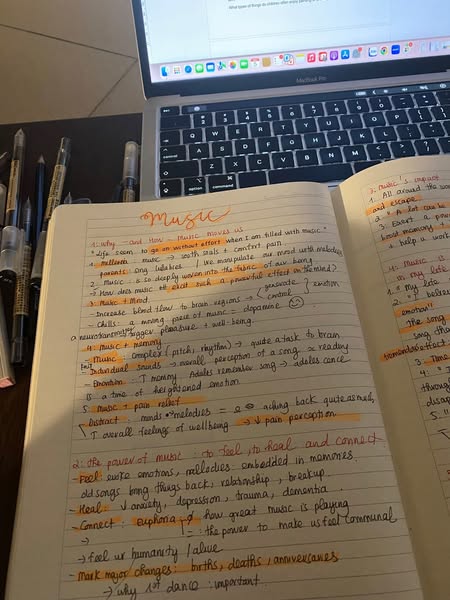 What types of things do children often enjoy
MacBook Pro
Music
1: Why and How Music moves us
"Life seem to go on without effort when I am filled with music"
music → sooth souls + comfort pain
parents: sing lullabies / we manipulate our mood with melodies
2: Music is so deeply woven into the fabric of our being
→ How does music elicit such a powerful effect on the mind?
3: Music + Mind
- Increase blood flow to brain regions → generate emotion
control
- Chills: a moving piece of music = dopamine
a neurotransmitter trigger pleasure + well-being.
4: Music + memory
- Music: complex (pitch, rhythm) → quite a task to brain
- Individual sounds → overall perception of a song ≈ reading
- Emotion: ↑ memory. Adults remember song → adolescence
is a time of heightened emotion
5. Music + pain relief
Distract: minds → melodies = aching back quite as much,
↑ overall feelings of wellbeing → ↓ pain perception
2: The power of music: to feel, to heal and connect
- Feel: evoke emotions, melodies embedded in memories
old songs bring things back, relationship, breakup
- Heal: ↓ anxiety, depression, trauma, dementia
- Connect: Euphoria → how great music is playing
→ = the power to make us feel communal
→ feel ur humanity / alive
- Mark major changes: births, deaths, anniversaries
→ why 1st dance: important
3: Music's impact
1. All around the
and escape
2. A lot can be
3. Exert a
boost memory +
+ help u work
4: Music is
in my life
1. "my life
2. "I believe
emotion"
the song
song that
tremendous effect
3. Time
4. "I
through
disap
5. "I